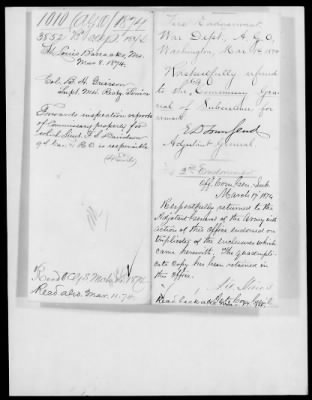 1010 (A.G.O.) 1874
3852
St. Louis Barracks, Mo.
Mar 8. 1874.
Col. B. H. Grierson
Supt. Mtd. Rectg. Service
Forwards inspection reports
of Commissary property for
which Lieut. F. S. Davidson
9th Cav. R.O. is responsible
Recd A.G.O. Mar 11. 74.
First Endorsement.
War Dept., A. G. O.
Washington, Mar 1874
Respectfully referred
to the Commissary Gen-
eral of Subsistence for
remark.
E. D. Townsend
Adjutant General.
2nd Endorsement
Off. Com. Gen. Sub.
March 17 1874
Respectfully returned to the
Adjutant General of the Army
action of this office endorsed on
triplicates of the enclosures which
came herewith. The quadrupli-
cate copy has been retained in
this office.